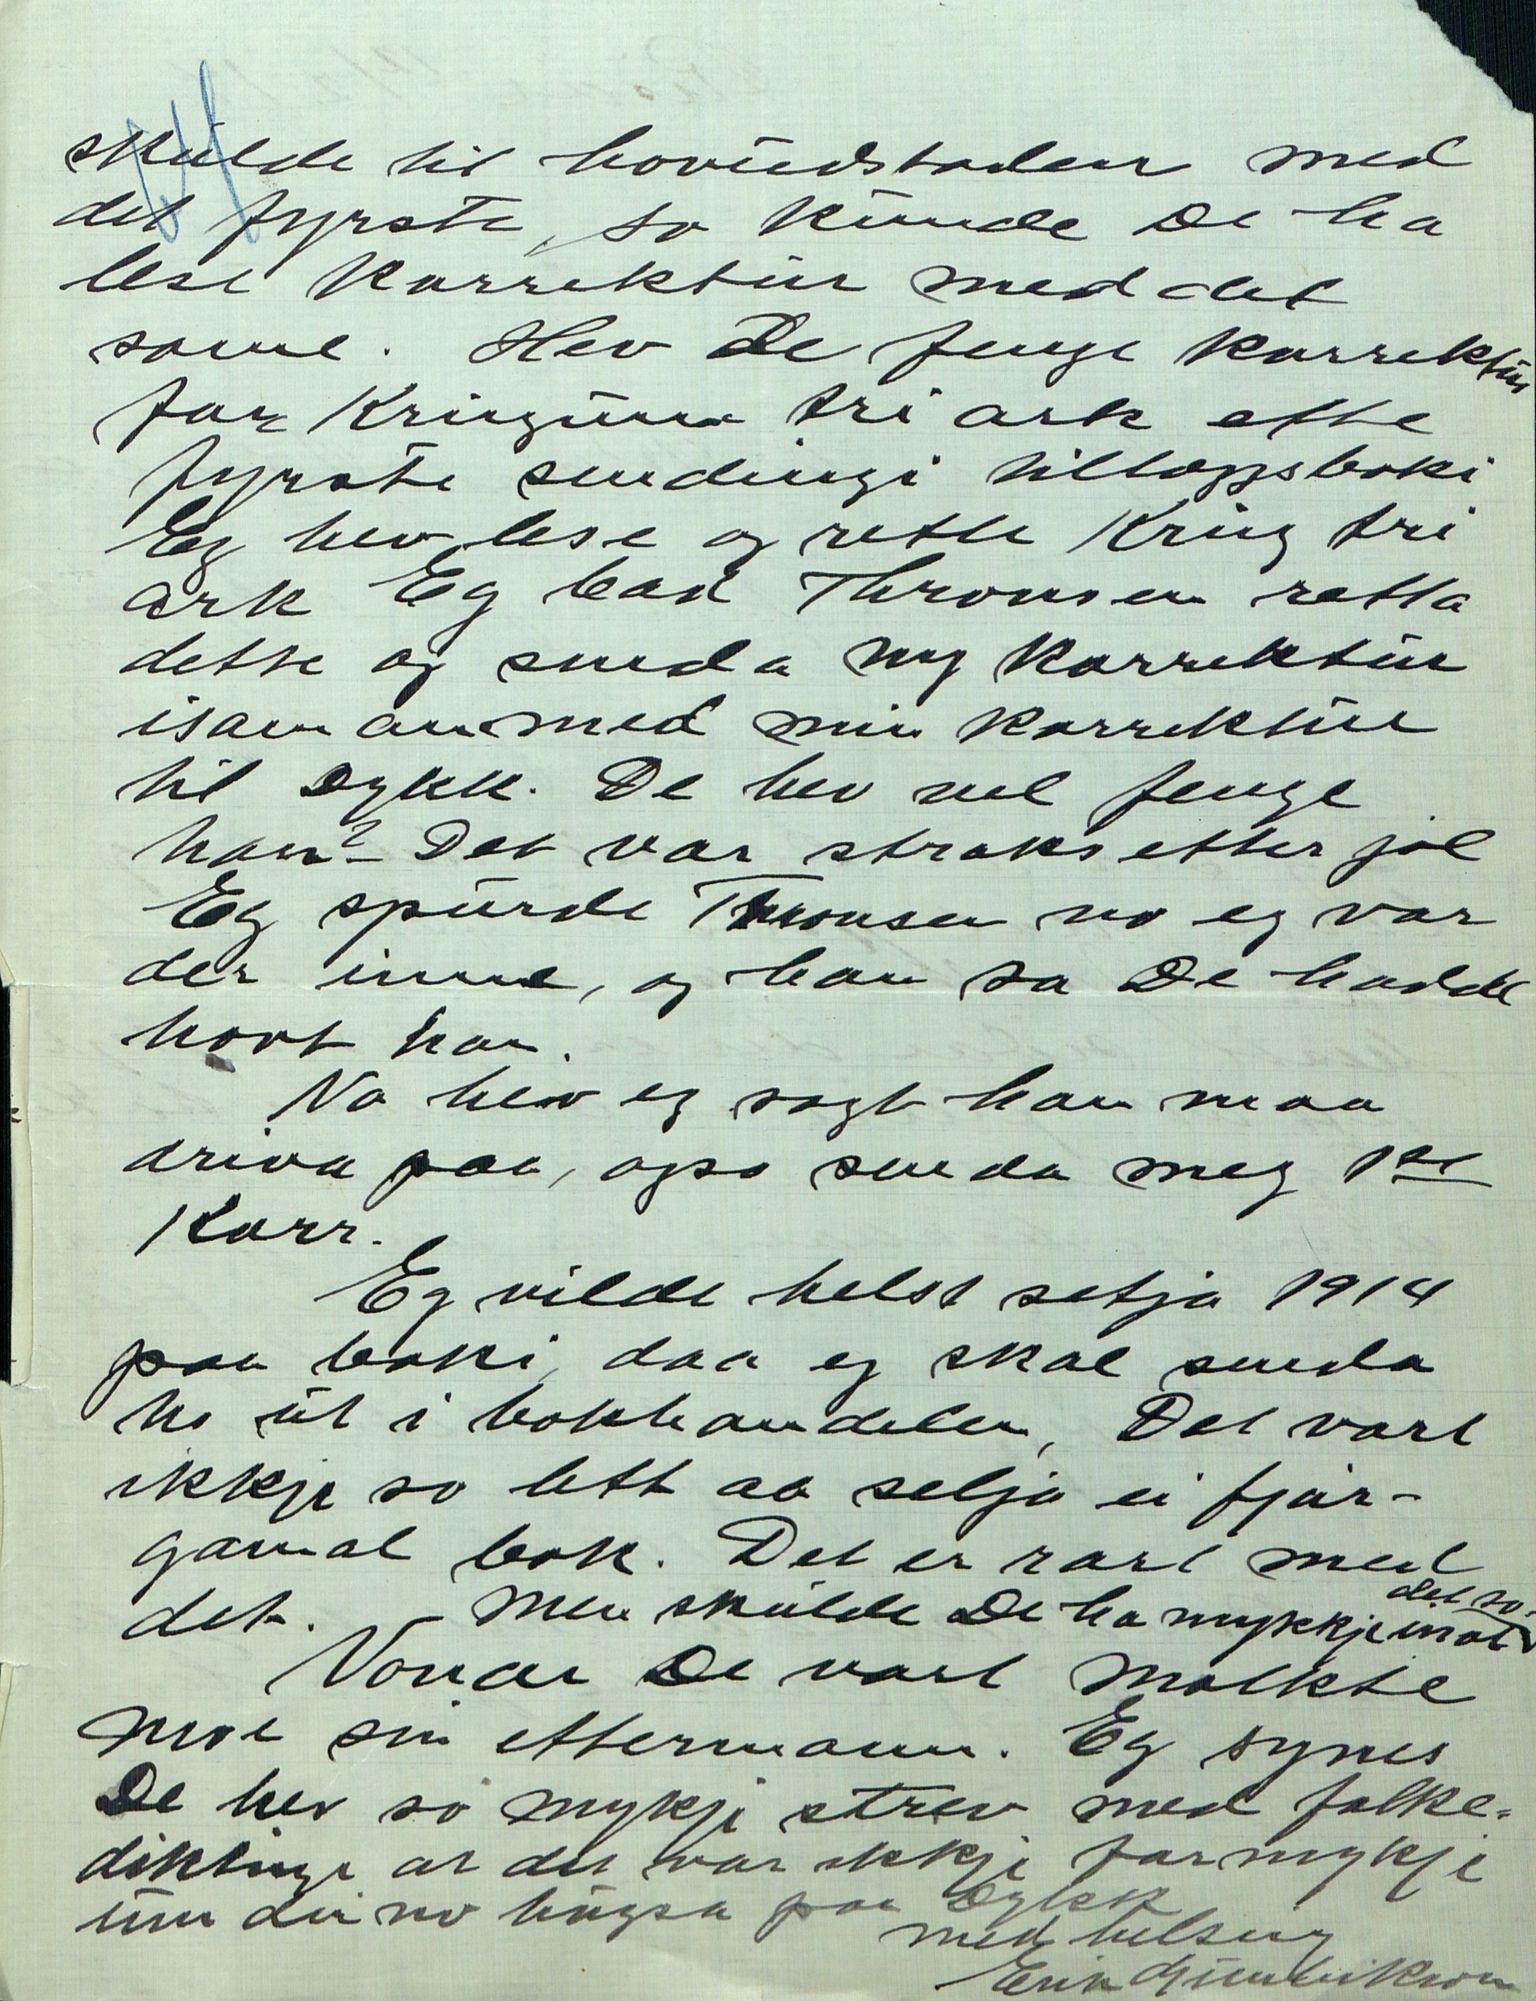 skulde til hovudstaden med
det fyrste, so kunde De ha
lese Korrektur med det
same. Hev De fenge Korrektur
for Kringum tri ark ette
fyrste sendingi tilleggsboki
Eg hev lese og rette Kring tri
ark Eg bad Thronsen retta
dette og senda ny Korrektur
isaman med min Korrektur
til Dykk. De hev vel fenge
han? – Det var straks etter jol
Eg spurde Thronsen no eg var
der inne, og han sa De hadde
havt han.
No hev eg sagt han maa
driva paa, ogso senda meg 1ste
Korr.
Eg vilde helst setja 1914
paa boki, daa eg skal senda
ho ut i bokhandelen, Det vart
ikkje so lett aa selja ei fjor-
gamal bok. Det er rart med
det. Men skulde De ha mykkje imot
det so.
Vonar De vart Moltke
Moe sin ettermann. Eg synes
De hev so mykje strev med folke-
diktinge at det var ikkje for mykje
um dei no hugsa paa Dykk
med helsing
Erik Gunleikson